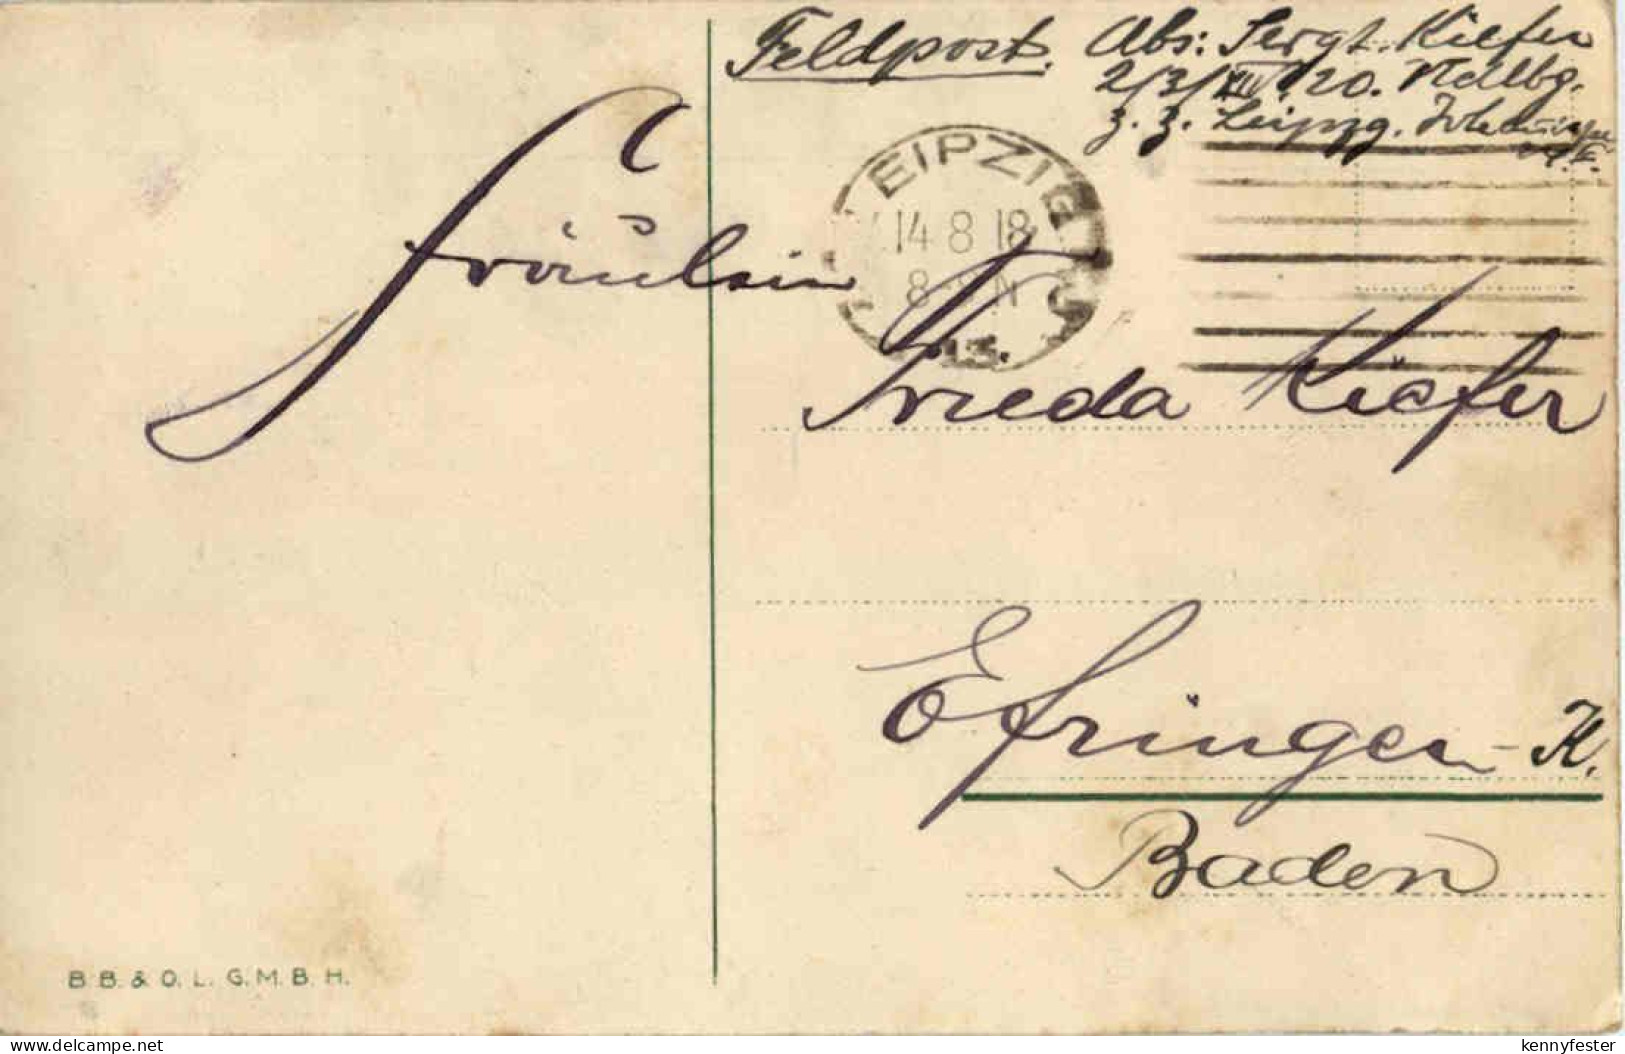 Feldpost. Abs: Sergt. Kiefer
2/3/XIV /20.
z. Z. Leipzig.
LEIPZIG
14 8 18
8-9 N
13.
Fräulein
Frieda Kiefer
Efringen-K.
Baden
B. B. & O. L. G. M. B. H.
delcampe.net
kennyfester